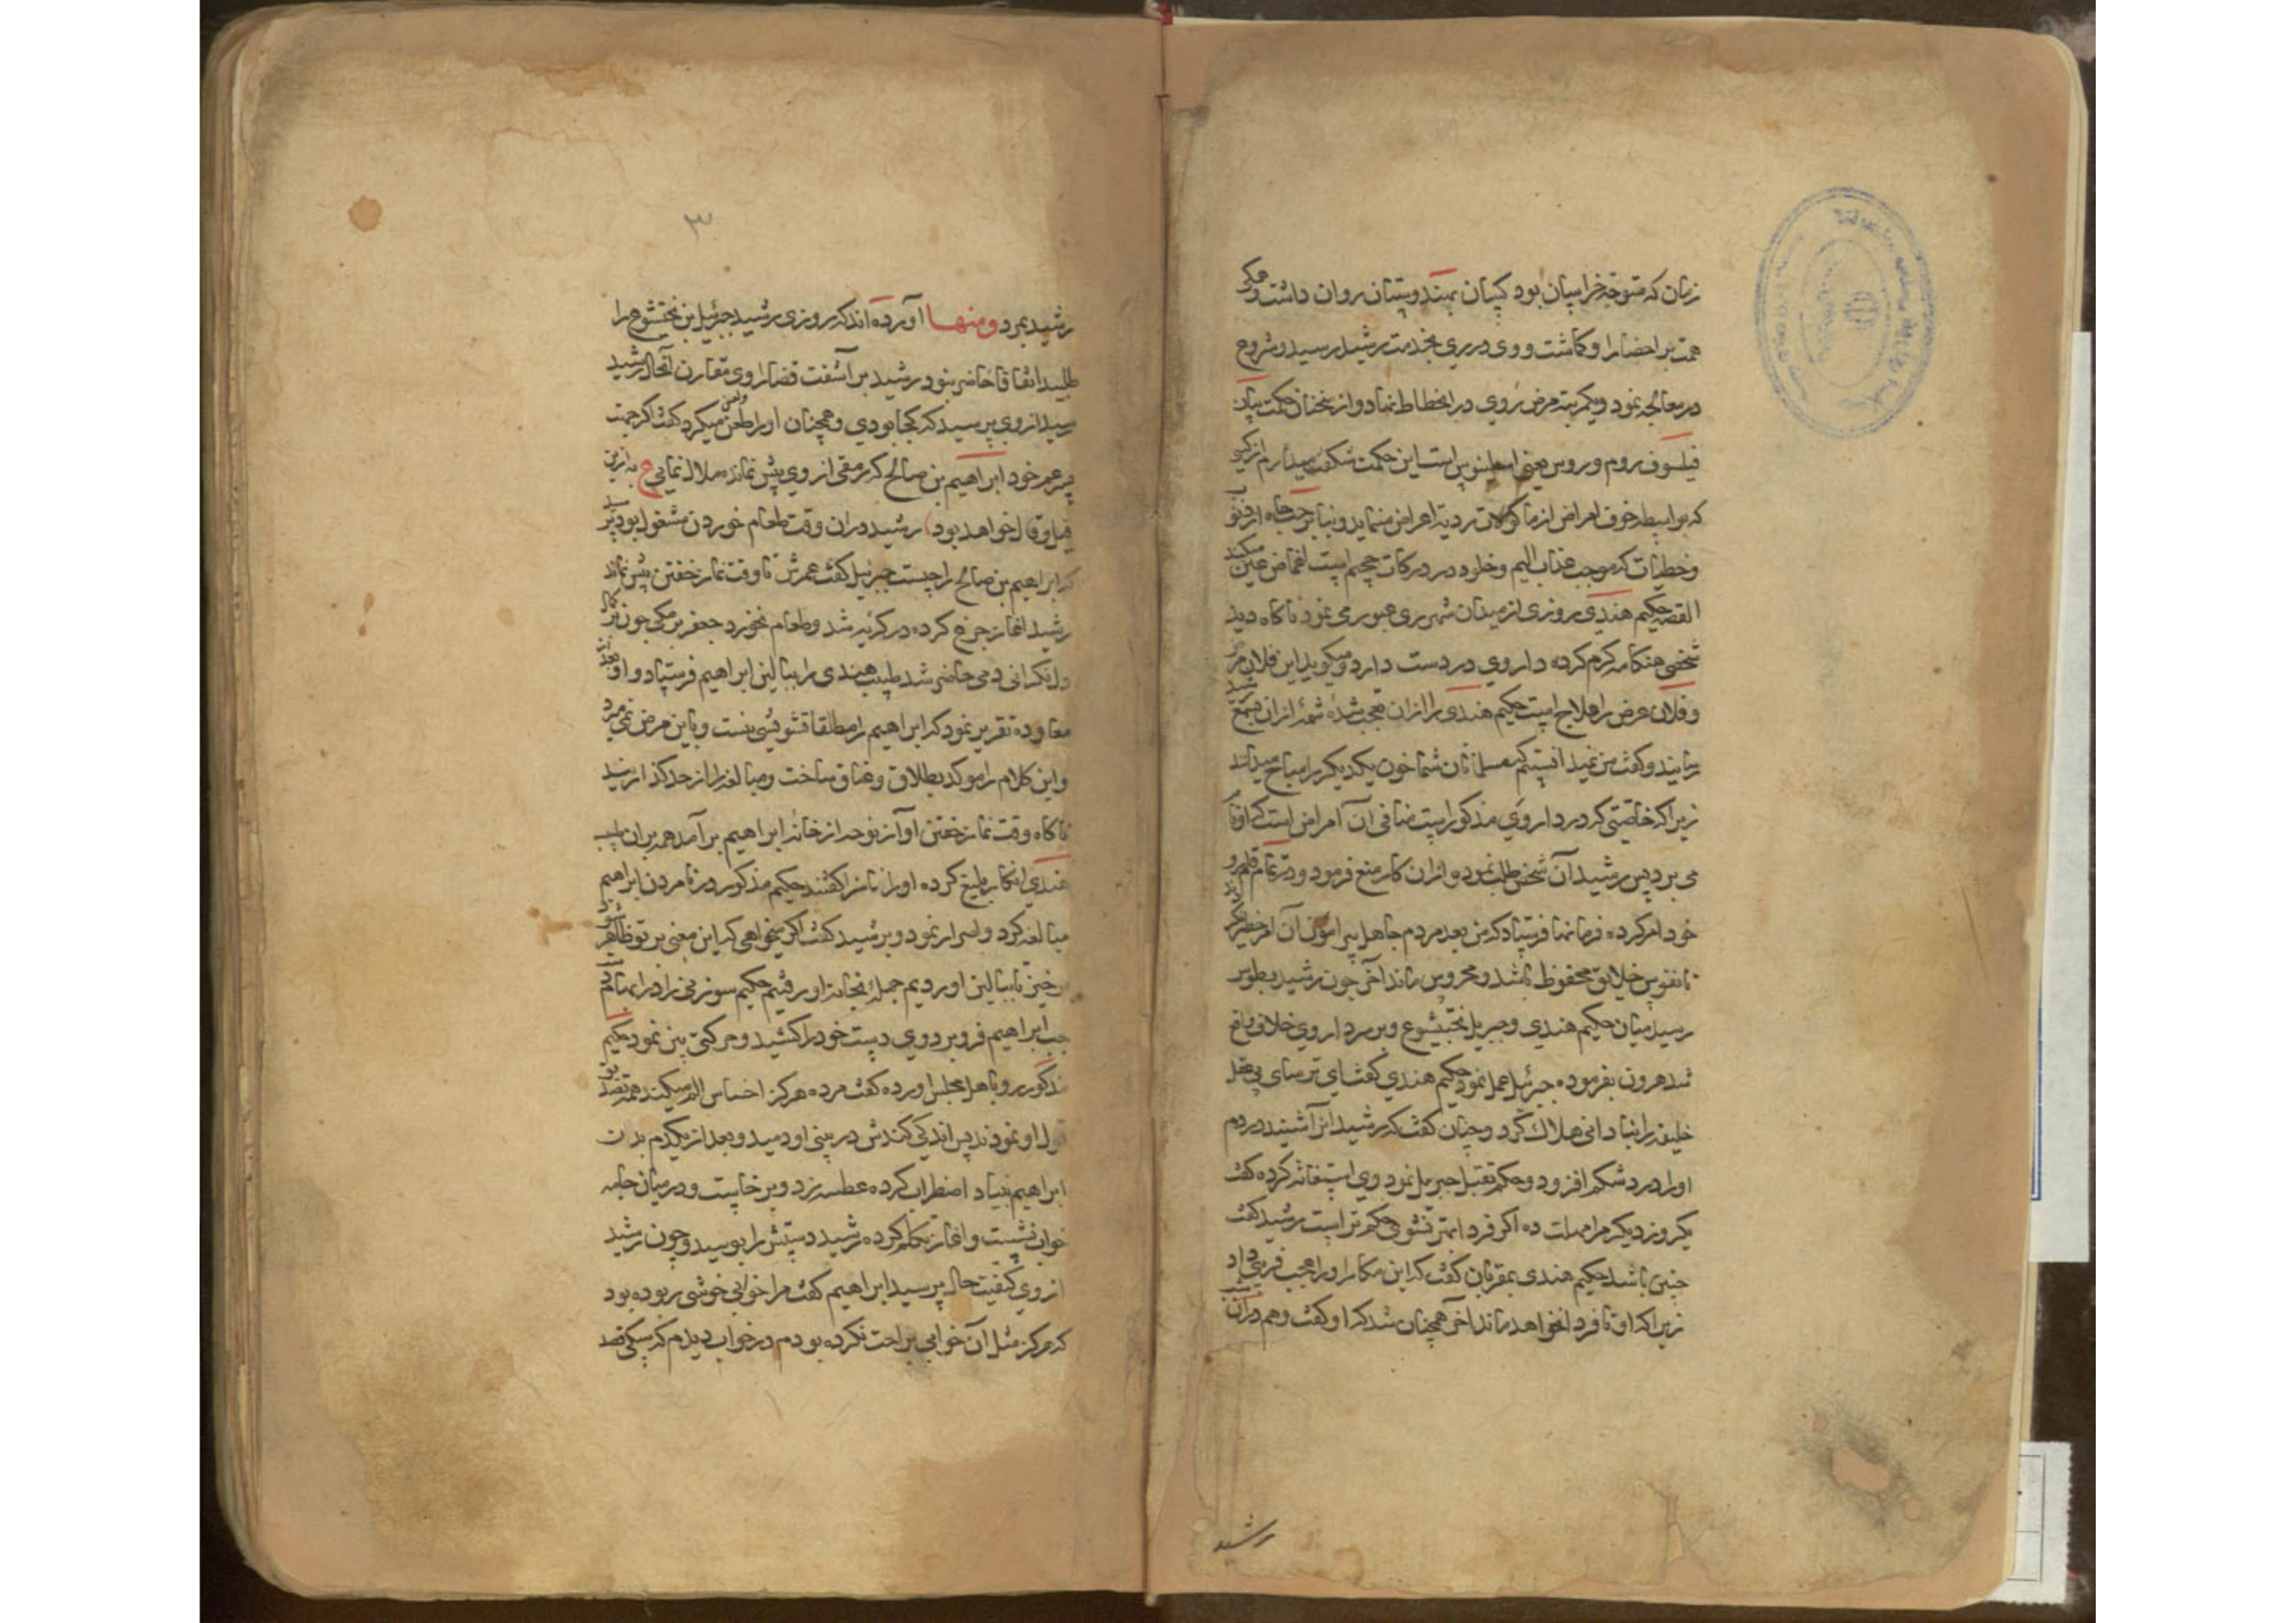 زمان که متوجه خراسان بود کسان بهندوستان روان داشت و همکی
همت بر احضار او کماشت و وی در ری بخدمت رشید رسید و شروع
در معالجه نمود و یکمرتبه مرض روی در انحطاط نهاد و از سخنان حکمت
فیلسوف روم و روس یعنی است این حکمت شکفت میدارم از کسی
که بواسطه خوف امراض از ماکولات ردیه اعراض مینماید و
و خطیات که موجب عذاب الیم و خلود در درکات جحیم است اغماض عین میکند
القصه حکیم هندی روزی از میدان شهر ری عبور می نمود ناکاه دید
شخصی هنکامه کرم کرده داروی در دست دارد و میکوید این فلان مرض
و فلان عرض را علاج است حکیم هندی را از آن تعجب شده شمه از آن بسمع رشید
رسانید و کفت من نمیدانستم که مسلمانان شما خون یکدیکر را مباح میدانند
زیرا که خاصیتی که در داروی مذکور است منافی آن امراض است که او نام
می برد پس رشید آن شخص طلب نمود و از آن کار منع فرمود و در تمام قلمرو
خود امر کرده فرمانها فرستاد که من بعد مردم جاهل پیرامون آن امر خطیر نکردند
تا نفوس خلایق محفوظ باشد و محروس ماند آخر چون رشید بطوس
رسید میان حکیم هندی و جبریل بختیشوع و بر سر داروی خلاف واقع
شد هرون بفرموده جبرئیل عمل نمود حکیم هندی کفت ای ترسای بی عقل
خلیفه را بنادانی هلاک کرد و چنان کفت که رشید از آن شنید در دم
او را درد شکم افزود و حکم بقتل جبریل نمود وی استغاثه کرده کفت
یکروز دیکر مرا مهلت ده اکر فردا بهتر نشوی حکم تراست رشید کفت
چنین باشد حکیم هندی بمقربان کفت که این مکار او را عجب فریبی داد
زیرا که او تا فردا نخواهد ماند آخر همچنان شد که او کفت و هم در آن شب
رشید
۳
رشید بمرد ومنها آورده اند که روزی رشید جبرئیل بن بختیشوع را
طلبید اتفاقا حاضر نبود رشید بر آشفت قضا را وی مقارن آنحال رشید
رسید از وی پرسید که کجا بودی و همچنان او را طعن میکرد کفت اکر جهت
پسر عم خود ابراهیم بن صالح که رمقی از وی بیش نمانده ملال نمایی ع به از این
قیل و قال خواهد بود رشید در آن وقت طعام خوردن مشغول بود پرسید
که ابراهیم بن صالح را چیست جبرئیل کفت عمرش تا وقت نماز خفتن بیش نماند
رشید آغاز جزع کرده در کریه شد و طعام نخورد جعفر برمکی چون
دل نکرانی دمی حاضر شد طبیب هندی را ببالین ابراهیم فرستاد و او بعد از
معاوده تقریر نمود که ابراهیم را مطلقا تشویشی نیست و باین مرض نمی میرد
و این کلام را موکد بطلاق و عتاق ساخت و مبالغه را از حد کذرانید
ناکاه وقت نماز خفتن آواز نوحه از خانه ابراهیم بر آمد همه بر آن طبیب
هندی انکار بلیغ کرده او را ناسزا کفتند حکیم مذکور در نامردن ابراهیم
مبالغه کرد و اسرار نمود و برشید کفت اکر میخواهی که این معنی بر تو ظاهر شود
برخیز تا ببالین او رویم جمله بخانه او رفتیم حکیم سوزنی را در ابهام دست
چپ ابراهیم فرو برد وی دست خود را کشید و حرکتی بین نمود حکیم
مذکور رو باهل مجلس آورده کفت مرده هرکز احساس الم میکند همه تصدیق
قول او نمودند پس اندکی کندش در بینی او دمید و بعد از یکدم بدن
ابراهیم بنیاد اضطراب کرده عطسه زد و برخاست و در میان جامه
خواب نشست و آغاز تکلم کرده رشید دستش را بوسید و چون رشید
از وی کیفیت حال پرسید ابراهیم کفت مرا خوابی خوشی ربوده بود
که هرکز مثل آن خوابی براحت نکرده بودم در خواب دیدم که سکی قصد